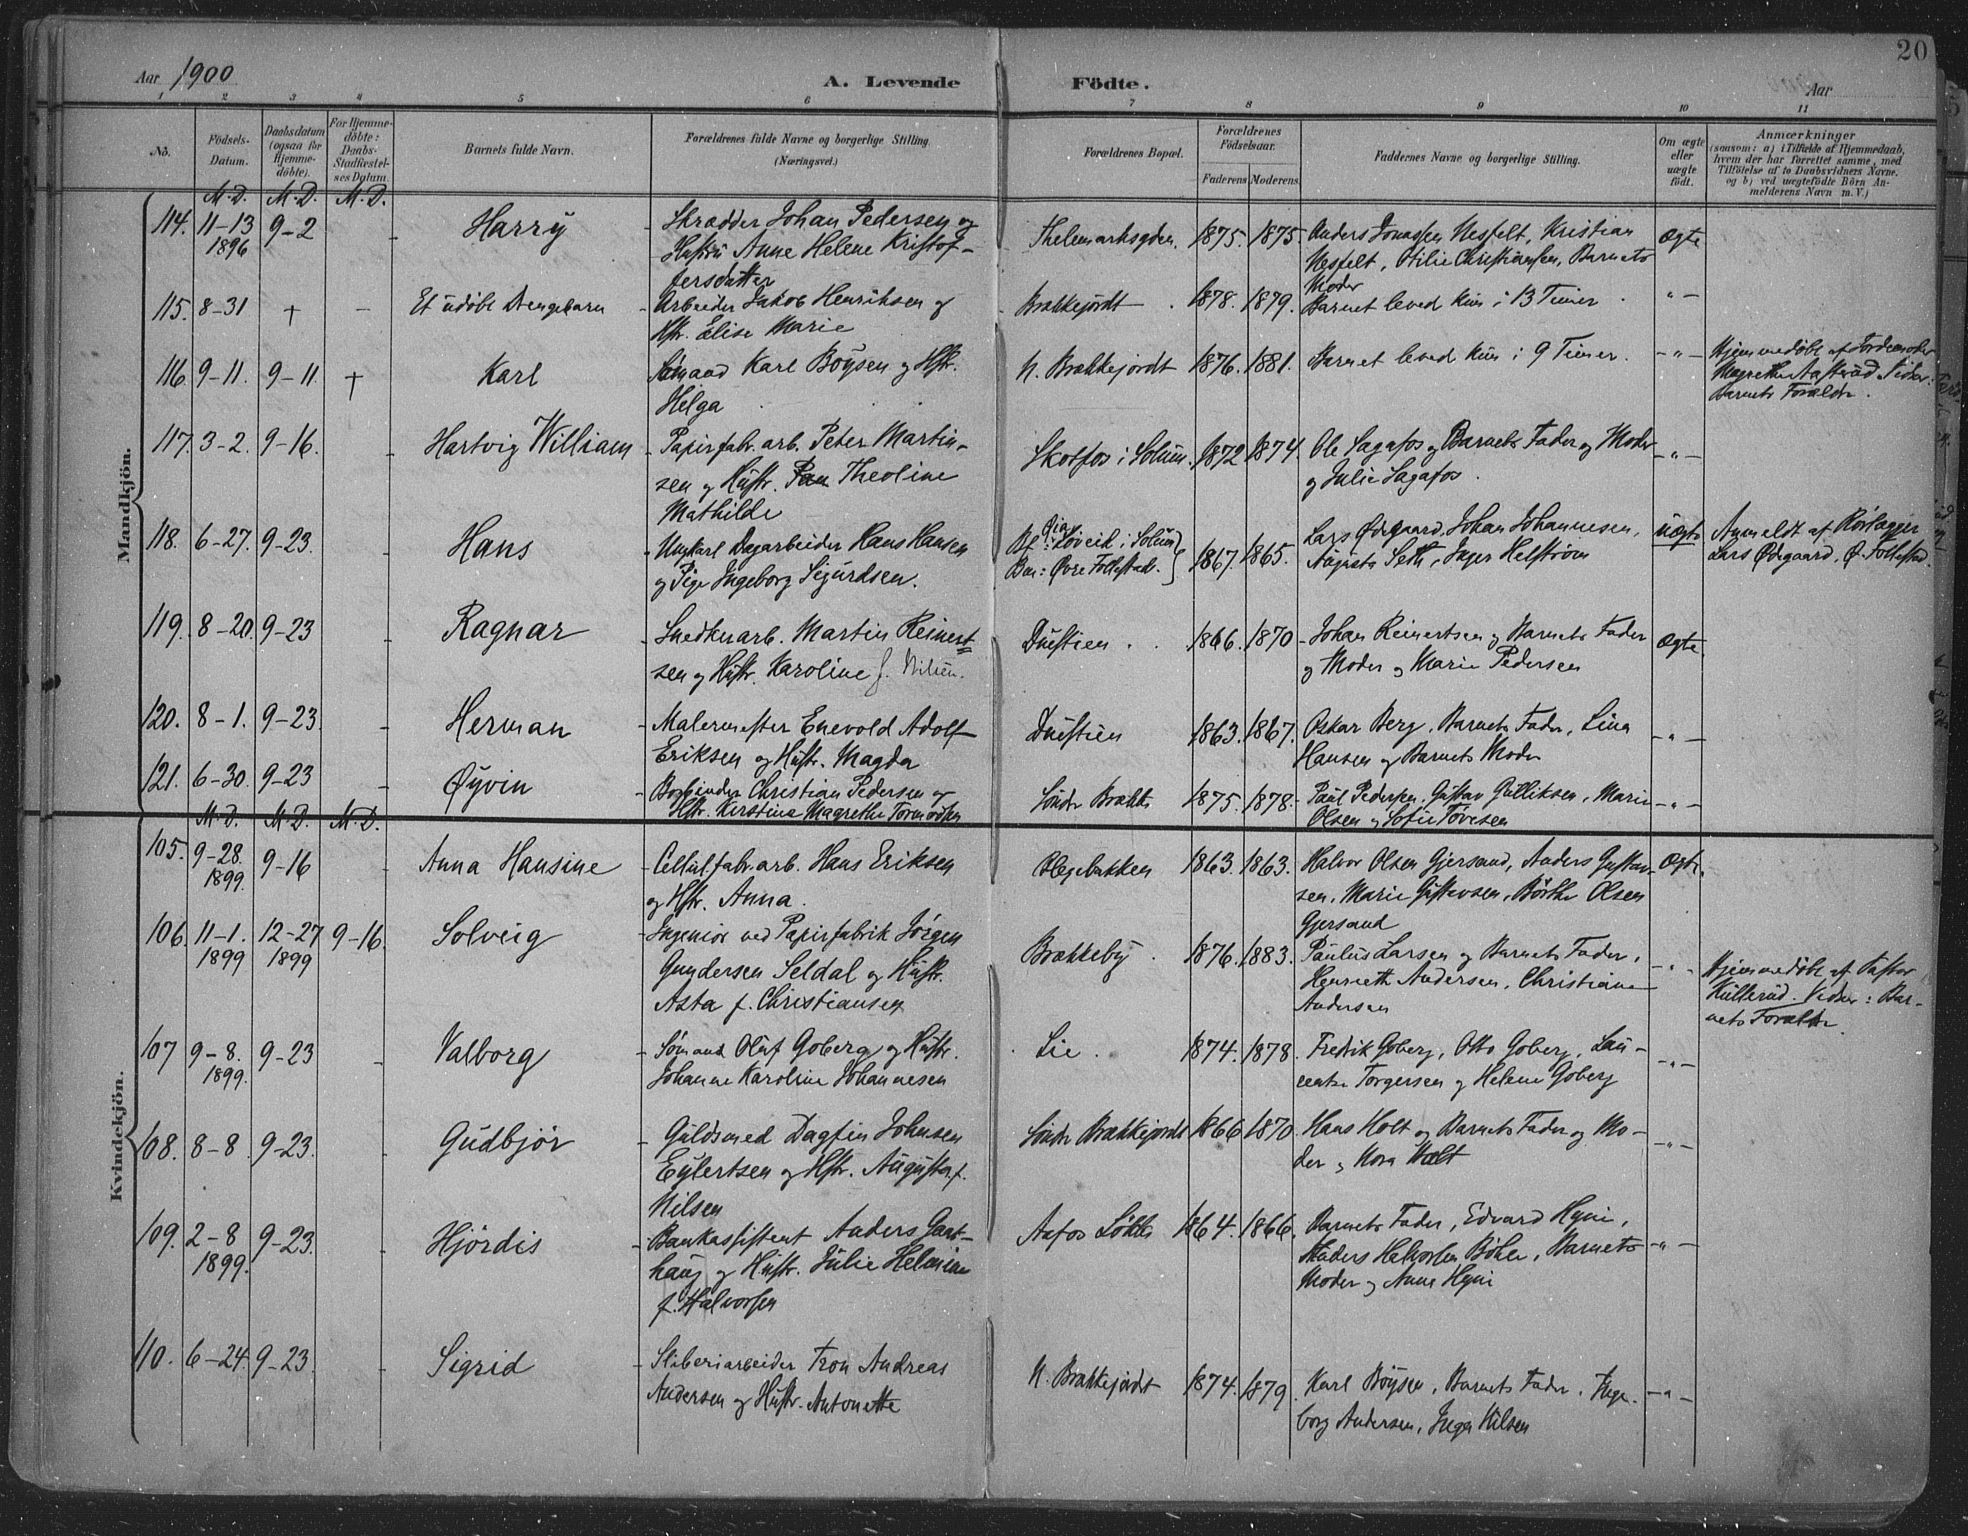 20
Aar 1900 A. Levende Födte. Aar
1 2 3 4 5 6 7 8 9 10 11
No. Födsels-Datum. Daabsdatum (ogsaa for Hjemmedöbte). For Hjemmedöbte: Daabs-Stadfæstelses Datum. Barnets fulde Navn. Forældrenes fulde Navne og borgerlige Stilling. (Næringsvei.) Forældrenes Bopæl. Forældrenes Födselsaar. Faderens Moderens. Faddernes Navne og borgerlige Stilling. Om ægte eller uægte födt. Anmærkninger (saasom: a) i Tilfælde af Hjemmedaab, hvem der har forrettet samme, med Tilföielse af to Daabsvidners Navne, og b) ved uægtefödte Börn Anmelderens Navn m. V.)
Mandkjön.
M. D. M. D. M. D.
114. 11-13 1896 9-2 - Harry - Skrædder Johan Pedersen og Thelemarksgden. 1875. 1875. Anders Jonassen Nesfelt, Kristian Ægte
Hustru Anne Helene Kristof- Nesfelt, Otilie Christiansen, Barnets
fersdatter Moder
115. 8-31 + - Et udøbt Drengebarn - Arbeider Jakob Henriksen og Brækkejordt. 1878. 1879. Barnet leved kun i 13 Timer. " -
Hstr. Elise Marie
116. 9-11. 9-11 + Karl Sømand Karl Bøysen og Hstr. N. Brækkejordt 1876. 1881. Barnet leved kun i 9 Timer. - " - Hjemmedøbt af Jordemoder
Helga Barnets Forældre.
117. 3-2. 9-16. - Hartvig William - Papirfabr. arb. Peter Martin- Skotfos i Solum. 1872 1874. Ole Sagafos og Barnets Fader og Moder - " -
sen og Hustr. Theoline og Julie Sagafos.
Mathilde
118. 6-27. 9-23. - Hans - Ungkarl Dagarbeider Hans Hansen i Solum 1867. 1865. Lars Ødegaard, Johan Johannesen, uægte Anmeldt af Rørlægger
og Pige Ingeborg Sigurdsen. Øvre Follestad. Seth, Inger Helstrøm Lars Ødegaard, Ø. Follestad.
119. 8-20. 9-23 - Ragnar - Snedkerarb. Martin Reinert- Duestien. 1866. 1870 - Johan Reinertsen og Barnets Fader Ægte.
sen og Hustr. Karoline f. Nilsen. og Moder og Marie Pedersen
120. 8-1. 9-23. - Herman - Malermester Enevold Adolf Duestien 1863. 1867. Oskar Berg, Barnets Fader, Lina - " -
Eriksen og Hustr. Magda Hansen og Barnets Moder
121. 6-30. 9-23 - Øyvin Bogbinder Christian Pedersen og Søndr Brække 1875. 1878. - Paul Pedersen, Gustav Gulliksen, Marie - " -
Hstr. Kirstine Magrethe Tormodsen Olsen og Sofie Tovesen
Kvindekjön.
M. D. M. D. M. D.
105. 9-28. 1899. 9-16 - Anna Hansine - Cellul. fabr. arb. Hans Eriksen 1863. 1863. Halvor Olsen Gjersand, Anders Gustav- Ægte.
og Hstr. Anna. sen, Marie Gustavsen, Børthe Olsen
Gjersand
106. 11-1. 1899 12-27 1899 9-16. Solveig - Ingeniør ved Papirfabrik Jørgen Brækkeby. 1876. 1883. Paulus Larsen og Barnets Fader, - " - Hjemmedøbt af Pastor
Gundersen Seldal og Hustr. Henriette Andersen, Christiane Kullerud. Vidner: Bar-
Asta f. Christiansen Andersen nets Forældre
107 9-8. 1899. 9-23 - Valborg - Sømand Oluf Goberg og Hustr. Lie. 1874. 1878. Fredrik Goberg, Otto Goberg, Lau- - " -
Johanne Karoline Johannesen rentze Torgersen og Helene Goberg
108. 8-8. 9-23. - Gudbjør - Guldsmed Dagfin Johnsen Søndr Brækkejordt 1866 1870. Hans Holt og Barnets Fader og Mo- - " -
Eylertsen og Hstr. Augusta f. der og Kora Holt
Nilsen
109. 2-8 1899. 9-23. - Hjørdis - Bankassistent Anders Gast- Aafos Løkke 1864. 1866. Barnets Fader, Edvard Hyni, - " -
haug og Hustr. Julie Helmine Anders Halvorsen Bøhle, Barnets
f. Halvorsen Moder og Anne Hyni
110. 6-24. 9-23. - Sigrid - Sliberiarbeider Tron Andreas N. Brækkejordt 1874. 1879. Karl Bøysen, Barnets Fader, Inge- - " -
Andersen og Hustr. Antonette borg Andersen, Inga Nilsen